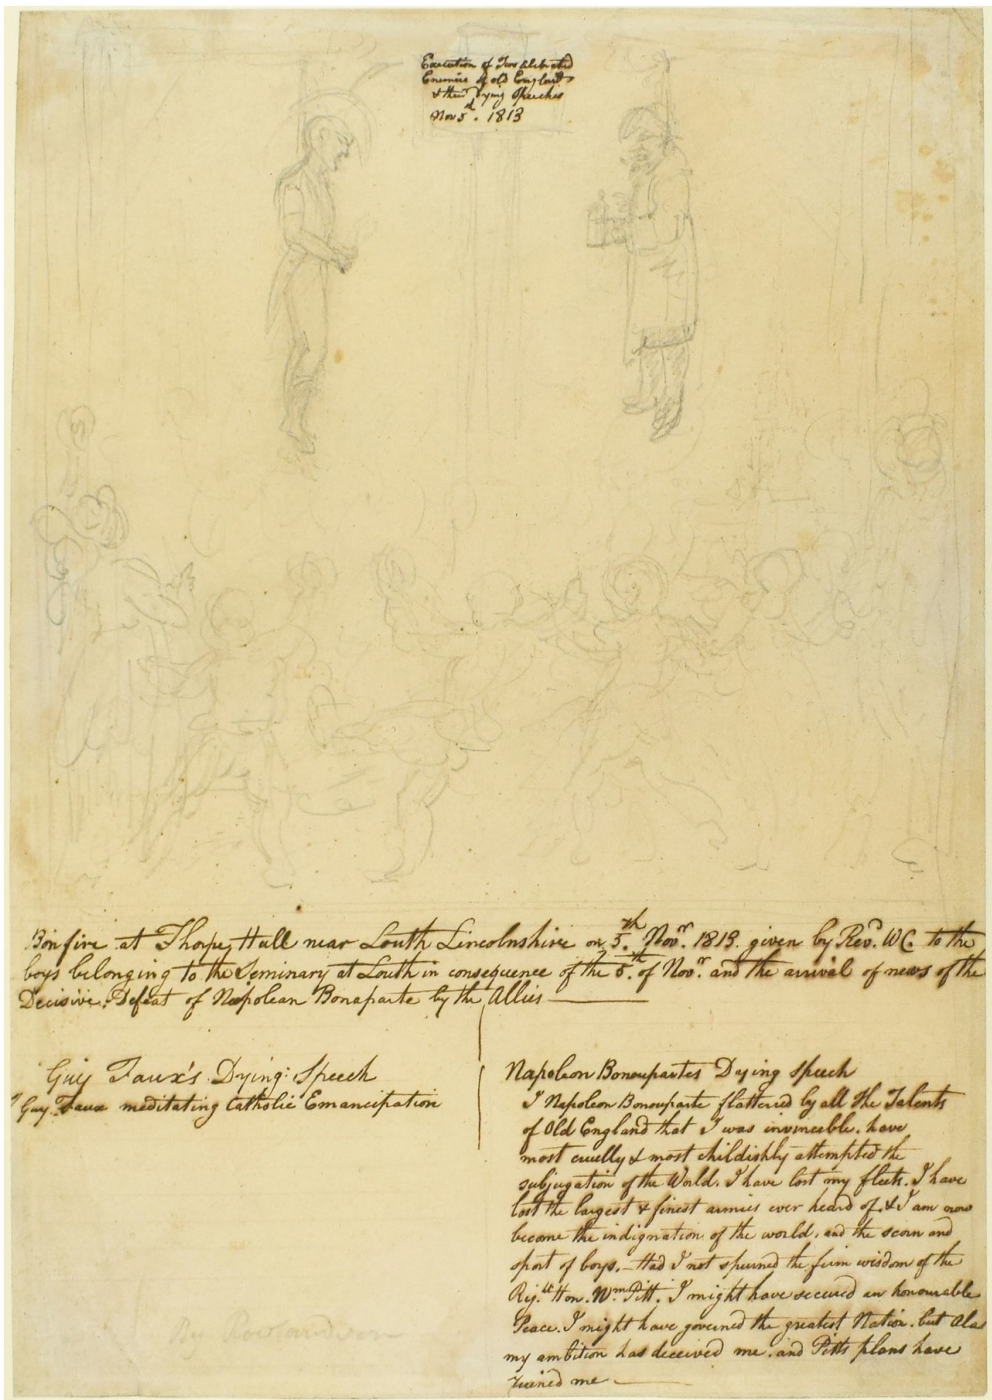 Execution of Two celebrated
Enemies of old England
& their Dying Speeches
Nov 5.th 1813
Bonfire at Thorpe Hall near Louth Lincolnshire on 5.th Nov.r 1813. given by Rev.d W C. to the
boys belonging to the Seminary at Louth in consequence of the 5.th of Nov.r and the arrival of news of the
Decisive. Defeat of Napolean Bonaparte by the Allies
Guy Faux's Dying Speech
I Guy. Faux meditating Catholic Emancipation
Napoleon Bonoupartes Dying Speech
I Napoleon Bonouparte flattered by all the Talents
of Old England that I was invinceable. have
most cruelly & most childishly attempted the
subjugation of the World. I have lost my fleets. I have
lost the largest & finest armies ever heard of. & I am now
become the indignation of the world, and the scorn and
sport of boys. – Had I not spurned the firm wisdom of the
Rig.ht Hon. W.m Pitt. I might have secured an honourable
Peace. I might have governed the greatest Nation. but Alas
my ambition has deceived me. and Pitts plans have
ruined me
By Rowlandson